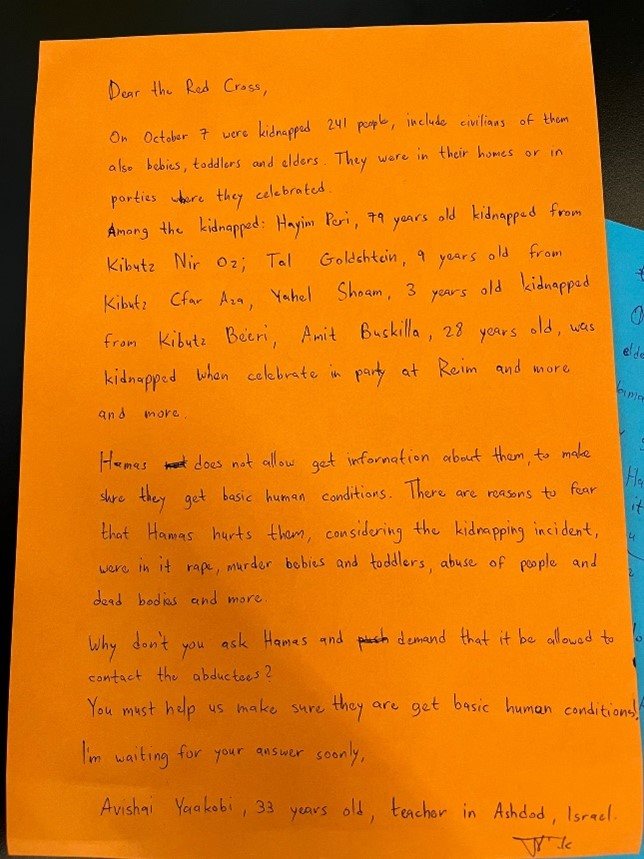 Dear the Red Cross,
On October 7 were kidnapped 241 people, include civilians of them
also bebies, toddlers and elders. They were in their homes or in
parties where they celebrated.
Among the kidnapped: Hayim Peri, 79 years old kidnapped from
Kibutz Nir Oz; Tal Goldshtein, 9 years old from
Kibutz Cfar Aza, Yahel Shoam, 3 years old kidnapped
from Kibutz Beeri, Amit Buskilla, 28 years old, was
kidnapped when celebrate in party at Reim and more
and more.
Hamas does not allow get information about them, to make
shre they get basic human conditions. There are reasons to fear
that Hamas hurts them, considering the kidnapping incident,
were in it rape, murder bebies and toddlers, abuse of people and
dead bodies and more.
Why don't you ask Hamas and demand that it be allowed to
contact the abductees?
You must help us make sure they are get basic human conditions!
I'm waiting for your answer soonly,
Avishai Yaakobi, 33 years old, teacher in Ashdod, Israel.